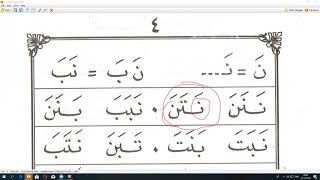 ٤
نَ = نَـ... نَ بَ = نَبَ
نَنَنَ نَتَنَ . نَبَبَ بَنَنَ
نَبَتَ بَنَتَ . تَبَنَ نَتَبَ